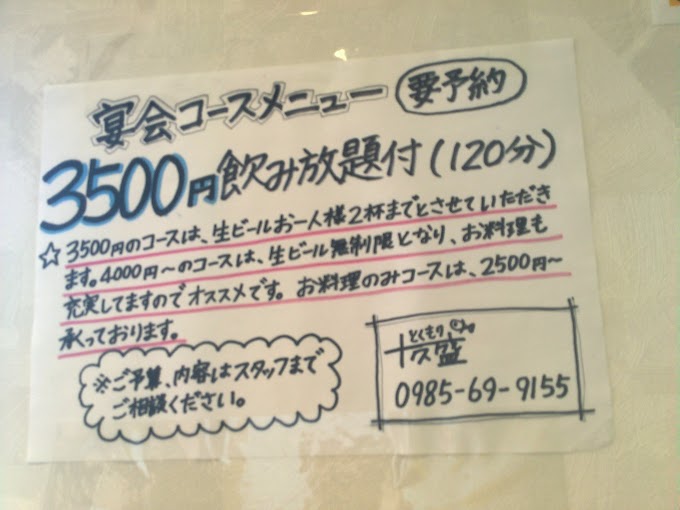 宴会コースメニュー 要予約
3500円飲み放題付(120分)
☆3500円のコースは、生ビールお一人様2杯までとさせていただき
ます。4000円～のコースは、生ビール無制限となり、お料理も
充実してますのでオススメです。お料理のみコースは、2500円～
承っております。
※ご予算、内容はスタッフまで
ご相談ください。
とくもり
十久盛
0985-69-9155